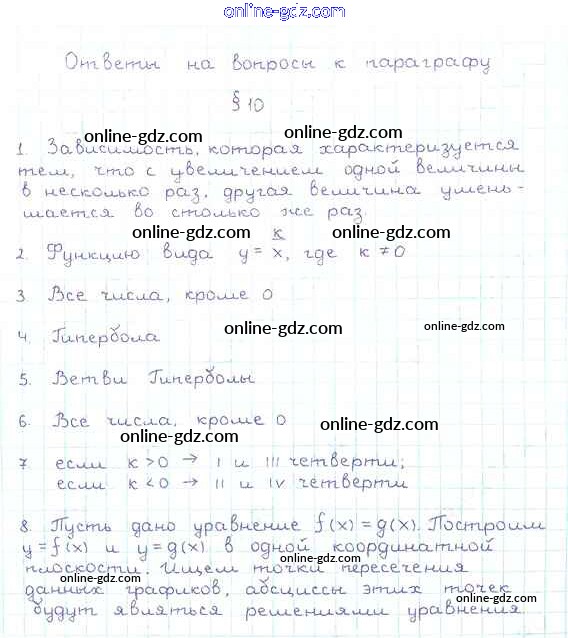 online-gdz.com
Ответы на вопросы к параграфу
§ 10
online-gdz.com online-gdz.com
1. Зависимость, которая характеризуется
тем, что с увеличением одной величины
в несколько раз, другая величина умень-
шается во столько же раз.
online-gdz.com online-gdz.com
2. Функцию вида y = k/x, где k ≠ 0
3. Все числа, кроме 0
online-gdz.com
online-gdz.com online-gdz.com
4. Гипербола
5. Ветви Гиперболы
online-gdz.com
6. Все числа, кроме 0
online-gdz.com online-gdz.com
7 если k > 0 → I и III четверти;
если k < 0 → II и IV четверти
online-gdz.com
8. Пусть дано уравнение f(x) = g(x). Построим
y = f(x) и y = g(x) в одной координатной
плоскости. Ищем точки пересечения
online-gdz.com
данных графиков, абсциссы этих точек
online-gdz.com online-gdz.com
будут являться решениями уравнения.